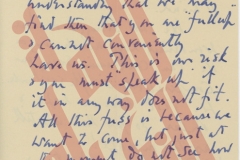 understand that we may
find then that you are "full up"
& cannot conveniently
have us. This is our risk
& you must speak up if
it in any way does not fit.
All this fuss is because we
want to come, but just at
the moment do not see how